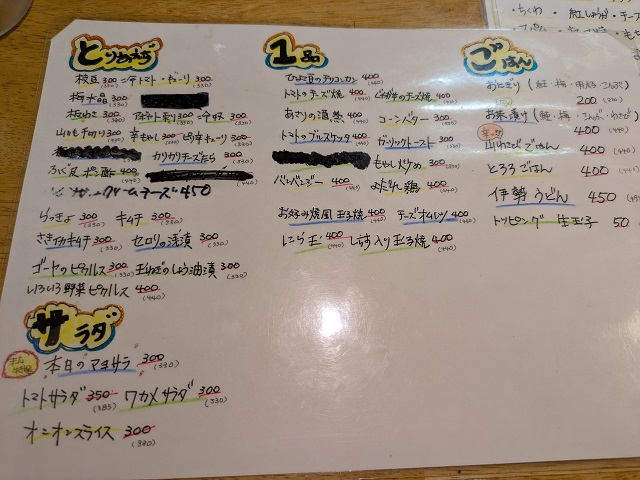 ・ちくわ ・紅しょうが ・チーズ
とりあえず
枝豆 300 (330) ニテトマト・きゅーり 300 (330)
梅水晶 300 (330)
板わさ 300
山いも千切り 300 辛もやし 300 ピリ辛キューリ 300
カリカリチーズたら 300 (330)
ふぐ皮ポン酢 400 (440)
クリームチーズ 450
らっきょ 300 (330) キムチ 300 (330)
さきイカキムチ 300 (330) セロリの浅漬 300 (330)
ゴーヤのピクルス 300 (330) 玉ねぎのしょう油漬 300 (330)
いろいろ野菜ピクルス 400 (440)
サラダ
本日のマヨサラ 300 (330)
トマトサラダ 350 (385) ワカメサラダ 300 (330)
オニオンスライス 300 (330)
1品
400 (440)
トマトのチーズ焼 400 (440) じゃが芋のチーズ焼 400 (440)
あさりの酒蒸 400 (440) コーンバター 300 (330)
トマトのブルスケッタ 400 (440) ガーリックトースト 300
もやし炒め 300 (330)
バンバンジー 400 (440) よだれ鶏 400 (440)
お好み焼風玉子焼 400 (440) チーズオムレツ 400 (440)
にら玉 400 (440) しらす入り玉子焼 400 (440)
ごはん
おにぎり (鮭・梅・明太子・こんぶ)
200 (220)
お茶漬け (鮭・梅・こんぶ・わさび)
400 (440)
山わさびごはん 400 (440)
とろろごはん 400 (440)
伊勢うどん 450
トッピング 生玉子 50